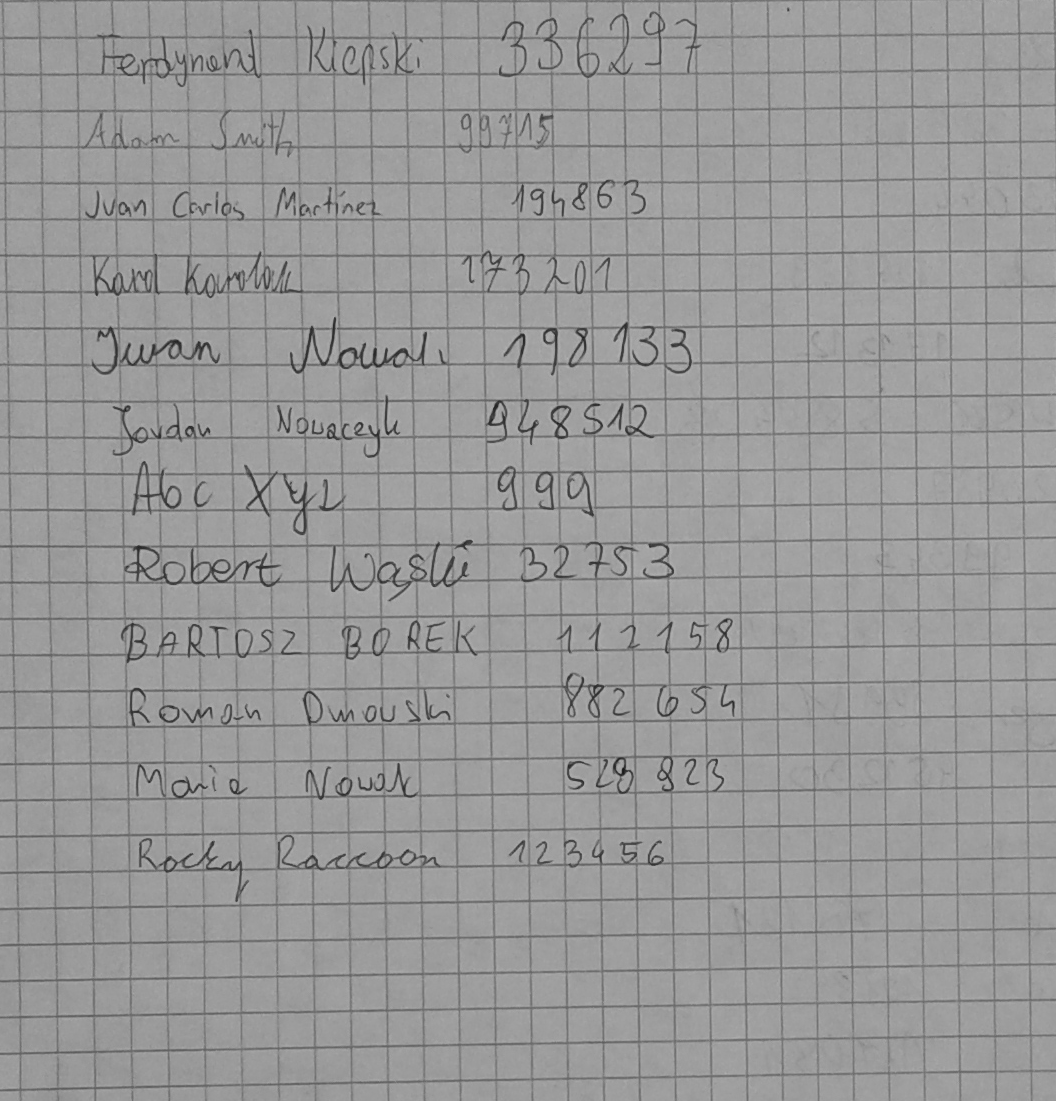 Ferdynand Kiepski 336297
Adam Smith 99715
Juan Carlos Martinez 194863
Karol Karolak 173201
Iwan Nowak 198133
Jordan Novaceyk 948512
Abc Xyz 999
Robert Wąski 32753
BARTOSZ BOREK 112158
Roman Dmowski 882 654
Maria Nowak 528 823
Rocky Raccoon 123456